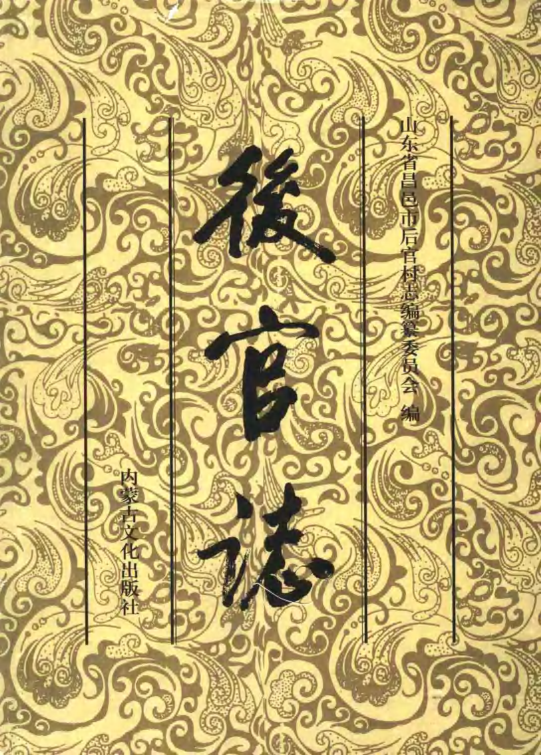 山东省昌邑市后官村志编纂委员会 编
後官誌
内蒙古文化出版社